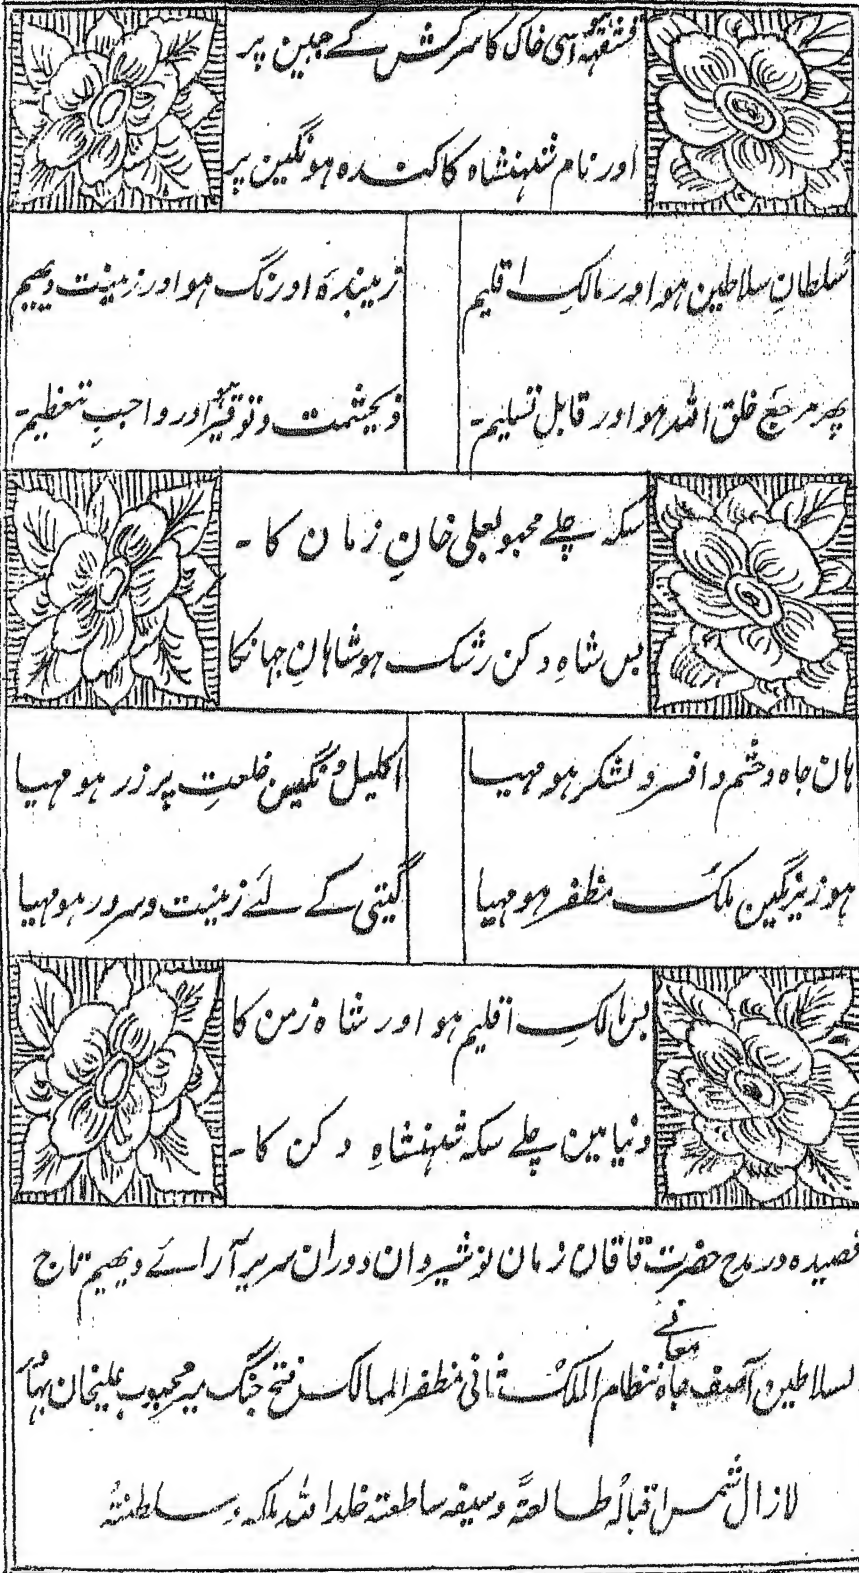 قشقہ ہو اسی خاک کا سرکش کے جبین پر
اور نام شہنشاہ کا کندہ ہو نگین پر
سُلطانِ سلاطین ہو اور مالکِ اقلیم
زیبندہ اورنگ ہو اور زینت دیہیم
پھر مرجعِ خلق اللہ ہو اور قابلِ تسلیم۔
ذیحشمت و توقیر ہو اور واجبِ تعظیم۔
سکہ چلے محبوبعلی خانِ زمان کا۔
بس شاہِ دکن رشک ہو شاہانِ جہانکا
ہان جاہ و حشم و افسر و لشکر ہو مہیا
اکلیل و نگین خلعتِ پر زر ہو مہیا
ہو زیر نگین ملک مظفر ہو مہیا
گیتی کے لئے زینت و سرور ہو مہیا
بس مالکِ اقلیم ہو اور شاہ زمن کا
دنیا مین چلے سکہ شہنشاہِ دکن کا۔
قصیدہ در مدح حضرت قاقان زمان نوشیروان دوران سریر آرائے دیہیم تاج
لسلاطین آصف جاہ نظام الملک ثانی مظفر الممالک فتح جنگ میر محبوب علیخان بہادر
لازال شمس اقبالہُ طالعتہً وسیفہ ساطعتہ خلد اللہ ملکہ وسلطنتہُ